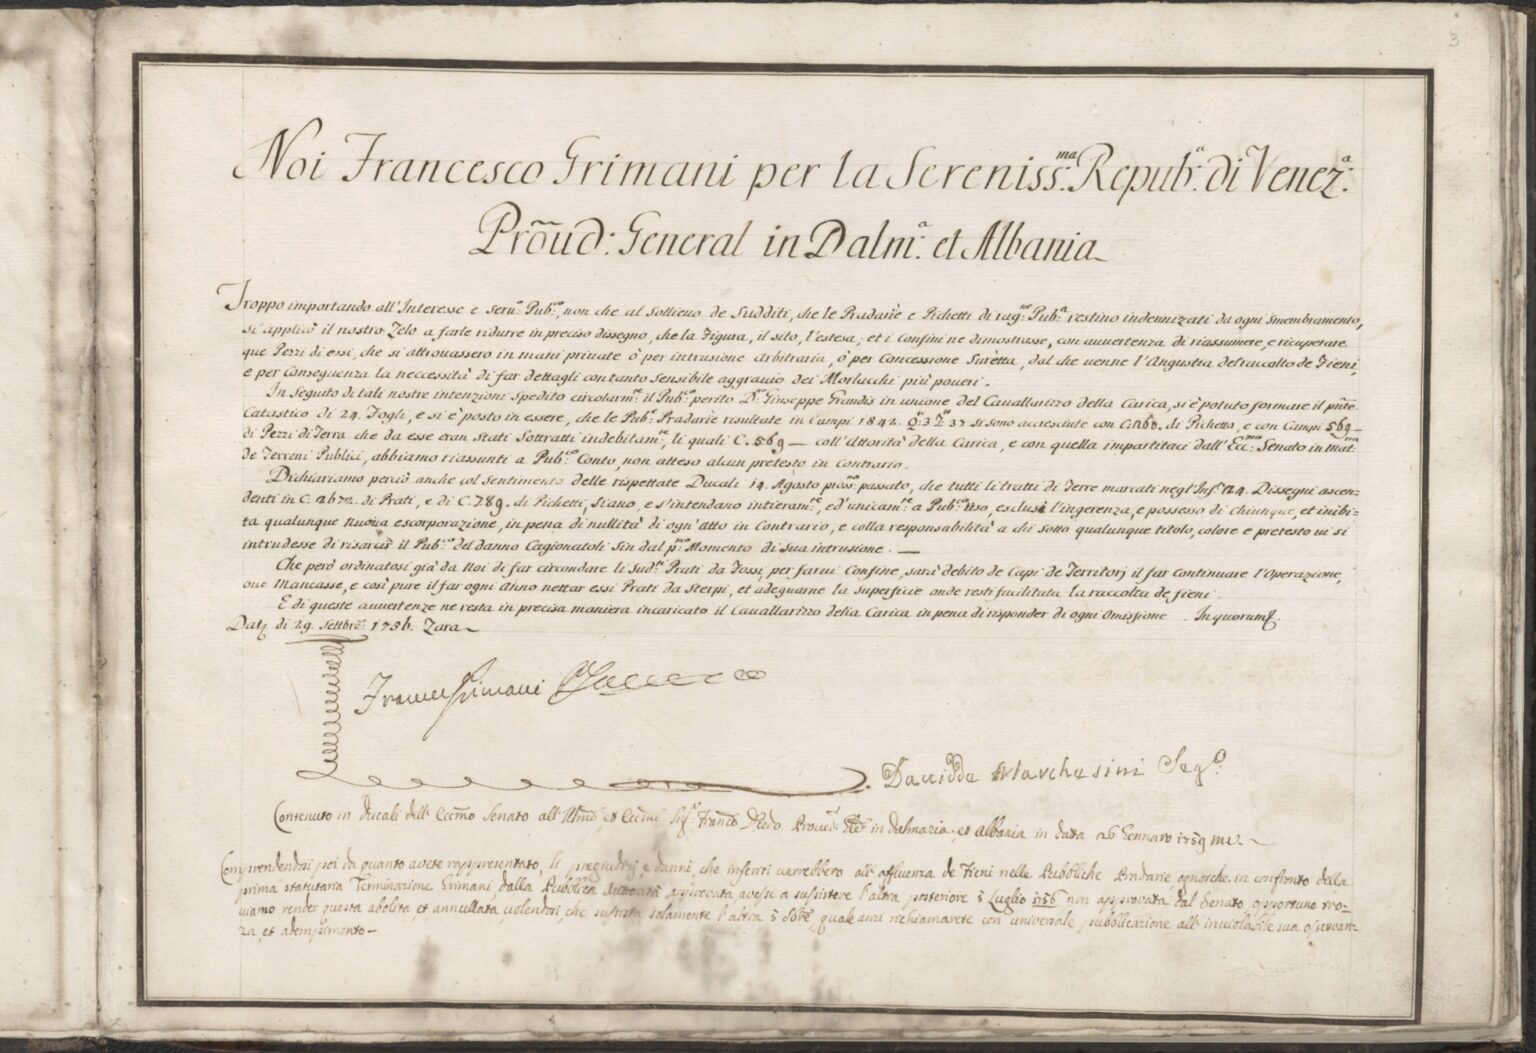 3
Noi Francesco Grimani per la Sereniss:ma Repub:a di Venez:a
Prõud: General in Dalm:a et Albania
Troppo importando all'Interesse e seru:o Pub:co, non che al sollieuo de Sudditi, che le Pradarie e Pichetti di rag:ne Pub:a restino indemnizati da ogni smembramento,
si applicò il nostro Zelo a farle ridurre in preciso dissegno, che la Figura, il sito, l'estesa, et i Confini ne dimostrasse, con auuertenza di riassumere, e ricuperare
que Pezzi di essi, che si attrouassero in mani priuate ò per intrusione Arbitraria, ò per Concessione Suretta, dal che uenne l'Angustia del raccolto de Fieni,
e per conseguenza la neccessità di far dettagli con tanto sensibile aggrauio dei Morlacchi più poueri.
In Seguito di tali nostre intenzioni spedito circolarm:te il Pub:co perito D:n Giuseppe Grandis in unione del Cauallarizzo della Carica, si è potuto formare il pñte
Catastico di 24. Fogli, e si è posto in essere, che le Pub:e Pradarie risultate in Campi 1842. Q:ti 3 T:e 37 si sono accresciute con C: 260. di Pichetto, e con Campi 569 –
di Pezzi di Terra che da esse eran stati sottratti indebitam:te, li quali C. 569 — coll'Attorità della Carica, e con quella impartitaci dall'Ecc:mo Senato in mat:a
de Terreni Publici, abbiamo riassunti a Pub:co Conto, non atteso alcun pretesto in Contrario.
Dichiariamo perciò anche col sentimento delle rispettate Ducali 14. Agosto pross:mo passato, che tutti li tratti di Terre marcati negl'Inf:ti 24. Dissegni ascen-
denti in C. 2672. di Prati, e di C. 789. di Pichetti, siano, e s'intendano intieram:te, ed unicam:te a Pub:co Uso, esclusi l'ingerenza, e possesso di chiunque, et inibi-
ta qualunque nuoua escorporazione, in pena di nullità di ogn'atto in Contrario, e colla responsabilità a chi sotto qualunque titolo, colore e pretesto ui si
intrudesse di risarcir il Pub:co del danno Cagionatoli sin dal p:mo Momento di sua intrusione. —
Che però ordinatosi già da Noi di far circondare li Sud:ti Prati da Fossi, per farui Confine, sarà debito de Capi de Territorj il far continuare l'Operazione,
oue Mancasse, e così pure il far ogni Anno nettar essi Prati da Sterpi, et adeguarne la superficie onde resti facilitata la raccolta de fieni.
E di queste auuertenze ne resta in precisa maniera incaricato il Cauallarizzo della Carica in pena di risponder di ogni Omissione. In quorum
Dat. di 29. Settbre: 1756. Zara
Franc Grimani
Dauidde Marchesini Seg:o
Contenuto in Ducali dell'Eccmo Senato all'Illmo, et Eccmo Sig:r Franco Diedo Proued: Gñle in Dalmazia, et Albania in data 26 Gennaro 1759 M.V.
Comprendendosi poi da quanto avete rappresentato, li pregiudizj, e danni, che inferiti verrebbero all'affluenza de Fieni nelle Pubbliche Pradarie, qnorche in confronto della
prima statutaria Terminazione Grimani, dalla Pubblica Autorità approvata, avesse a sussistere l'altra posteriore 5 Luglio 1756 non approvata dal Senato, opportuno tro-
viamo render questa abolita, et annullata, volendosi, che sussista solamente l'altra, quale anzi richiamarete con universale pubblicazione all'inviolabile sua osservan-
za, et adempimento